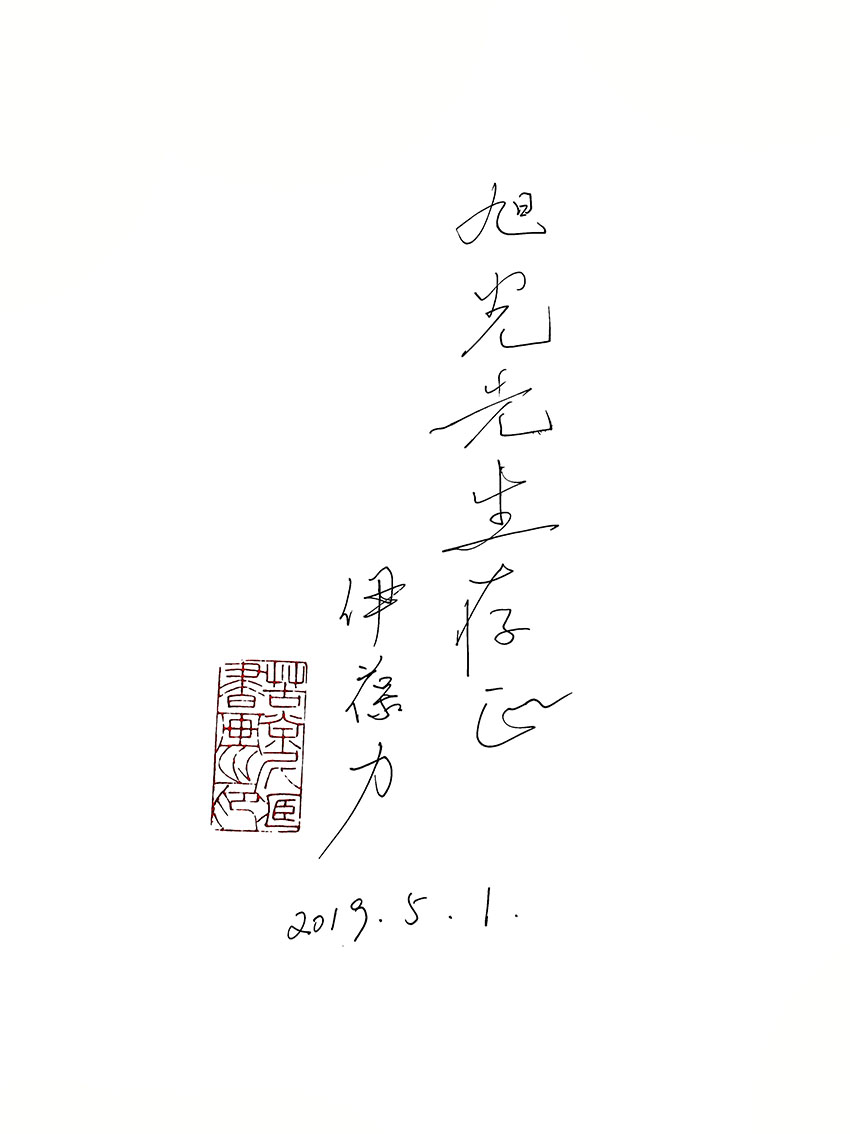 旭光先生存正
伊葆力
書畫
2019.5.1.